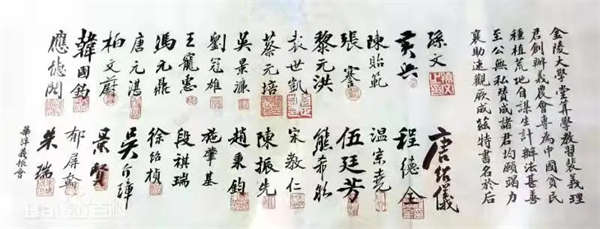 金陵大學堂算學教習裴義理
君創辦義農會專為中國貧民
種植荒地自謀生計辦法甚善
至公無私贊成諸君均願竭力
襄助速觀厥成茲特書名於后
孫文
黃興
陳貽範
張謇
黎元洪
袁世凱
蔡元培
吳景濂
劉冠雄
王寵惠
馮元鼎
唐元湛
柏文蔚
韓國鈞
應德閎
唐紹儀
程德全
溫宗堯
伍廷芳
熊希齡
宋教仁
陳振先
趙秉鈞
施肇基
段祺瑞
徐紹楨
吳介璋
景賢
郁屏翰
朱瑞
華洋義振會